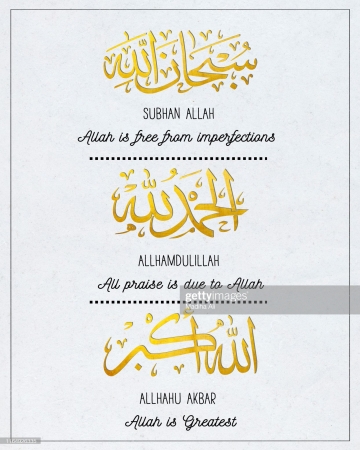 سُبْحَانَ اللّٰه
SUBHAN ALLAH
Allah is free from imperfections
الْحَمْدُ لِلّٰه
ALLHAMDULILLAH
All praise is due to Allah
gettyimages
اللّٰهُ أَكْبَر
ALLHAHU AKBAR
Allah is Greatest